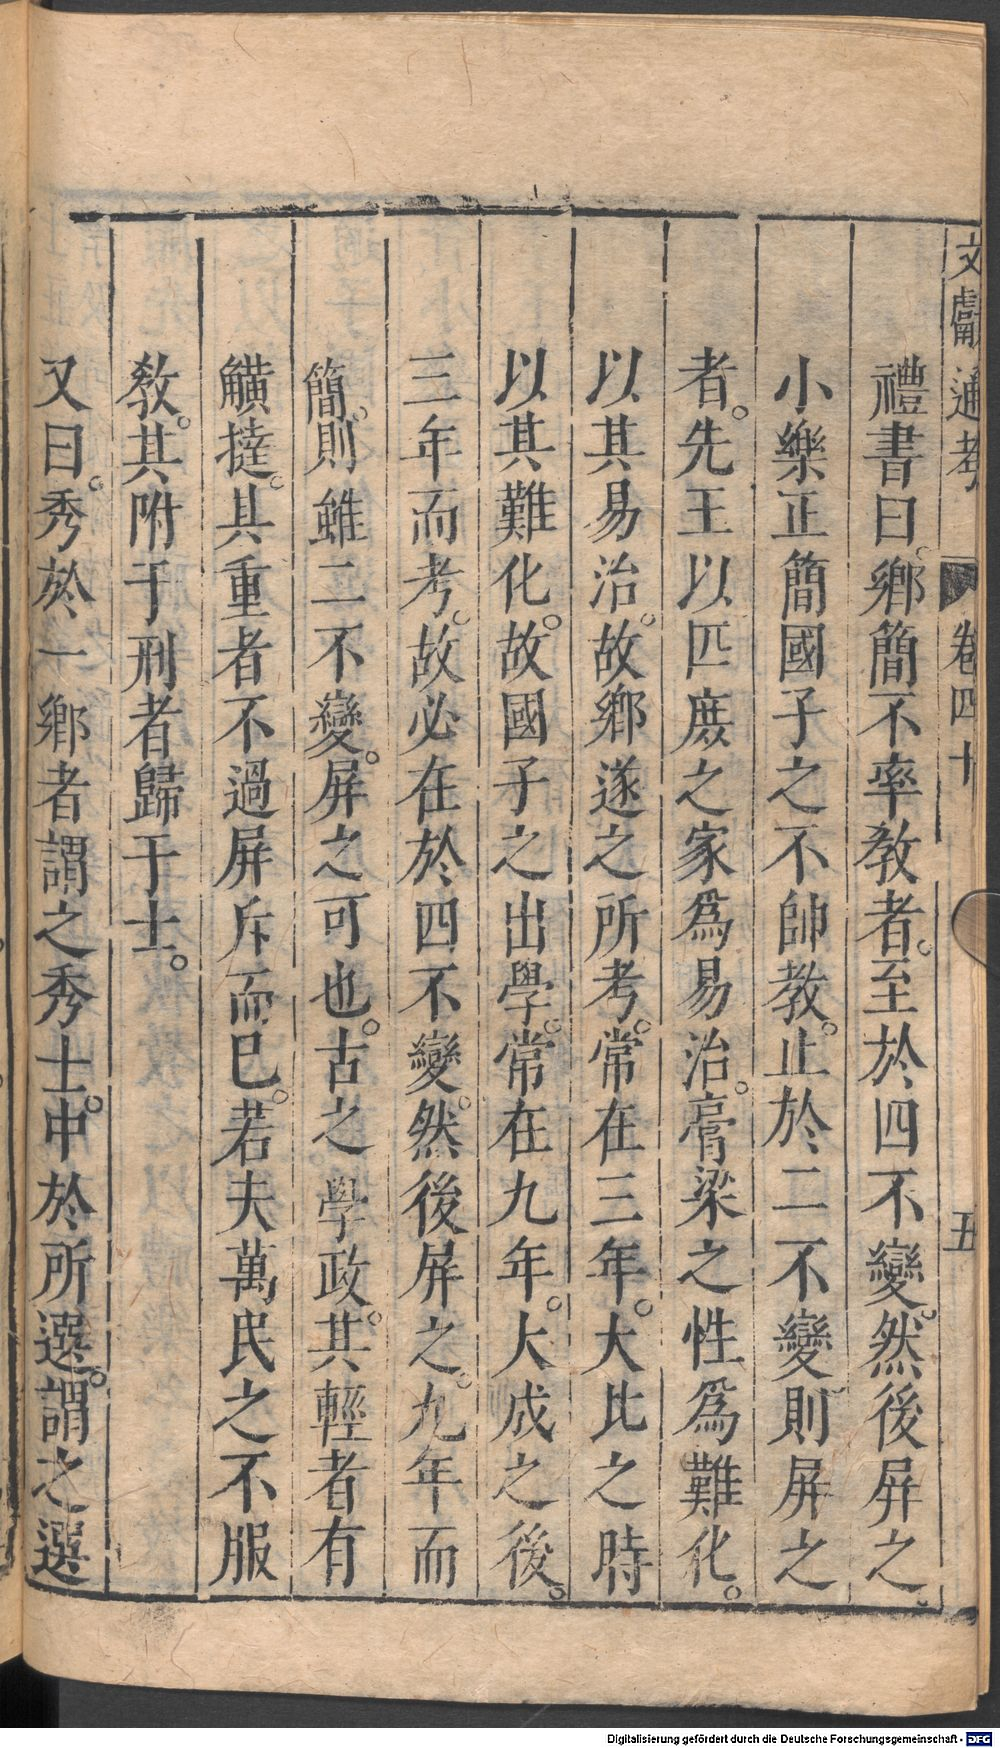 文獻通考 卷四十 五
禮書曰。鄉簡不率教者。至於四不變。然後屏之。
小樂正簡國子之不帥教。止於二不變則屏之
者。先王以匹庶之家爲易治。膏粱之性爲難化。
以其易治。故鄉遂之所考。常在三年。大比之時
以其難化。故國子之出學。常在九年。大成之後。
三年而考。故必在於四不變。然後屏之。九年而
簡。則雖二不變。屏之可也。古之學政。其輕者有
觵撻。其重者不過屏斥而已。若夫萬民之不服
教。其附于刑者歸于士。
又曰。秀於一鄉者謂之秀士。中於所選。謂之選
Digitalisierung gefördert durch die Deutsche Forschungsgemeinschaft - DFG